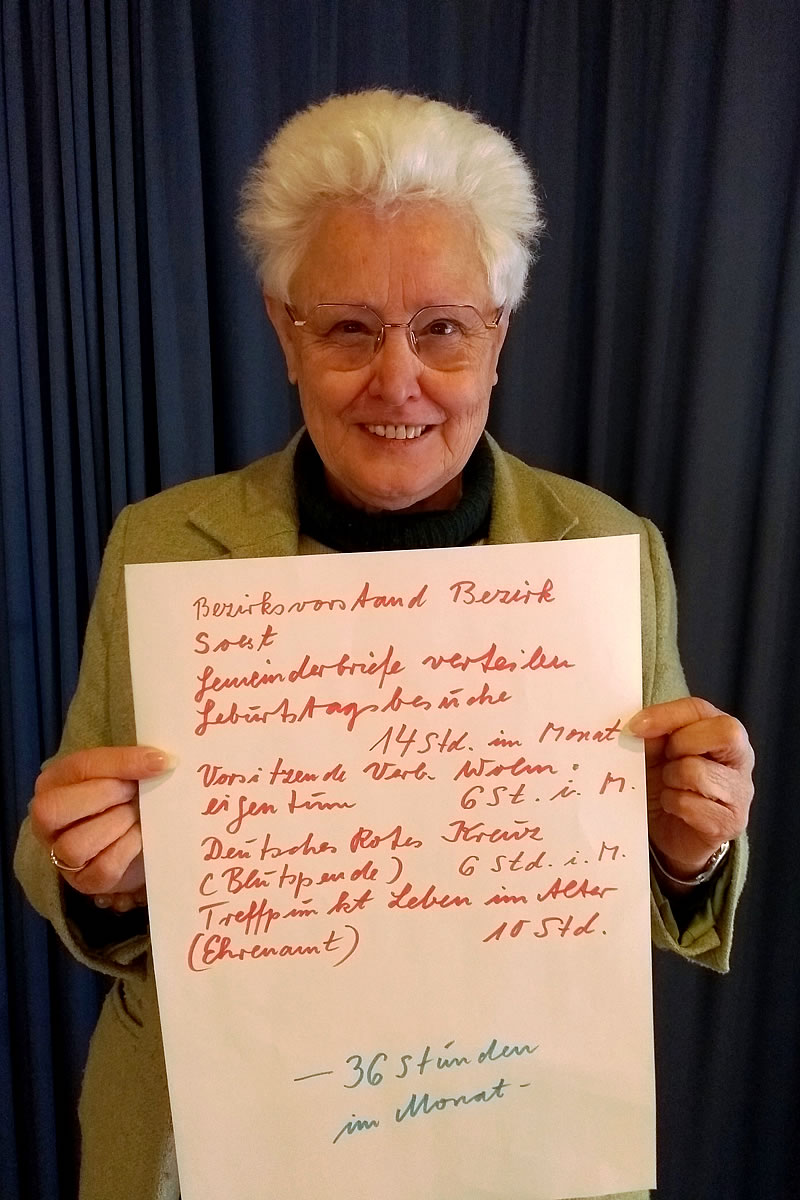 Bezirksvorstand Bezirk
Soest
Gemeinderbriefe verteilen
Geburtstagsbesuche
14 Std. im Monat
Vorsitzende Verb. Wohn-
eigentum 6 St. i. M.
Deutsches Rotes Kreuz
(Blutspende) 6 Std. i. M.
Treffpunkt Leben im Alter
(Ehrenamt) 10 Std.
— 36 Stunden
im Monat -